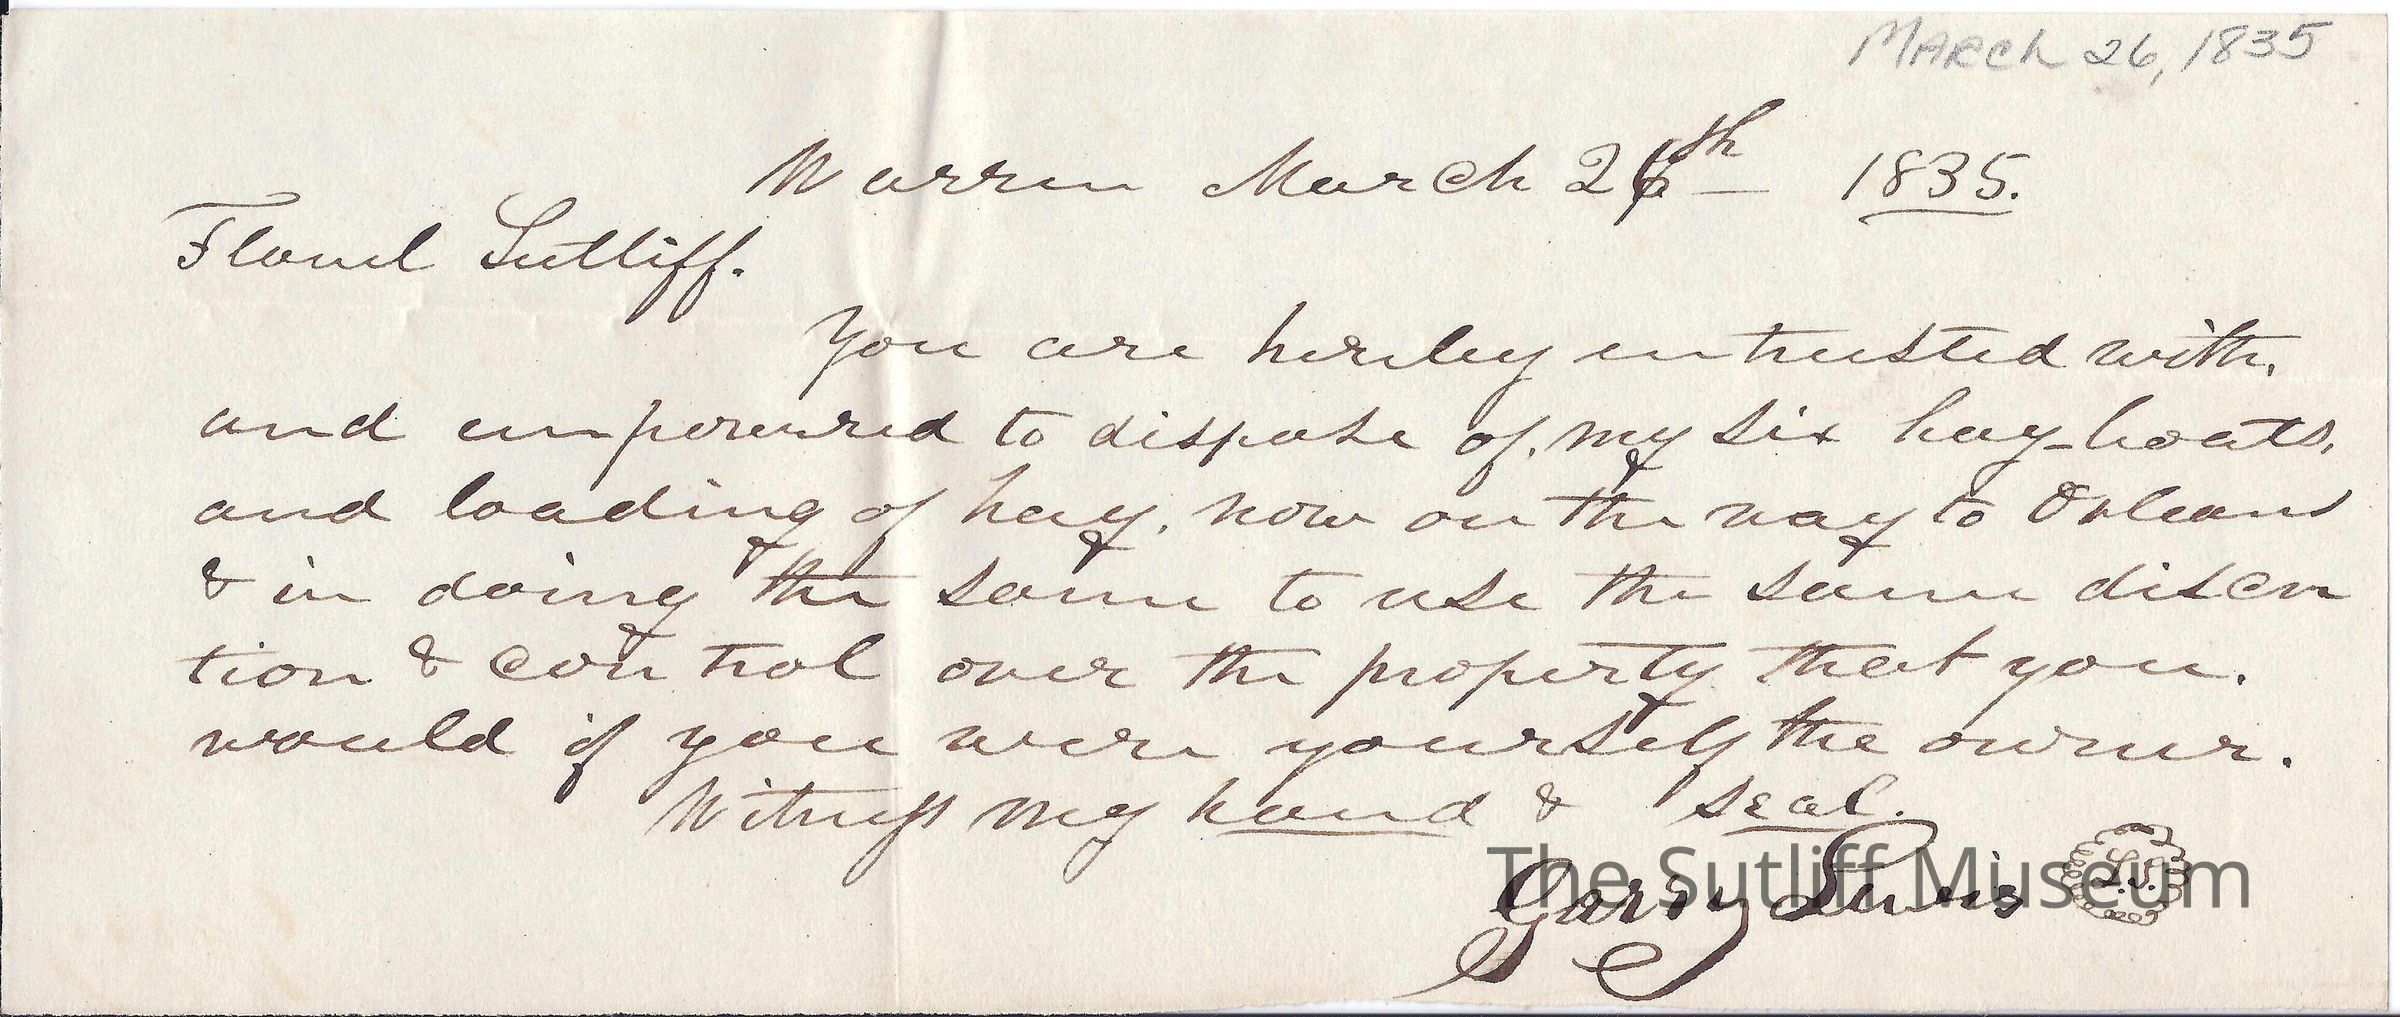 MARCH 26, 1835
Warren March 26th 1835.
Flavel Sutliff.
You are hereby entrusted with,
and empowered to dispose of, my six hay-boats,
and loading of hay, now on the way to Orleans
& in doing the same to use the same discre
tion & control over the property that you.
would if you were yourself the owner.
Witness my hand & seal.
Garry Lewis L.S.
The Sutliff Museum